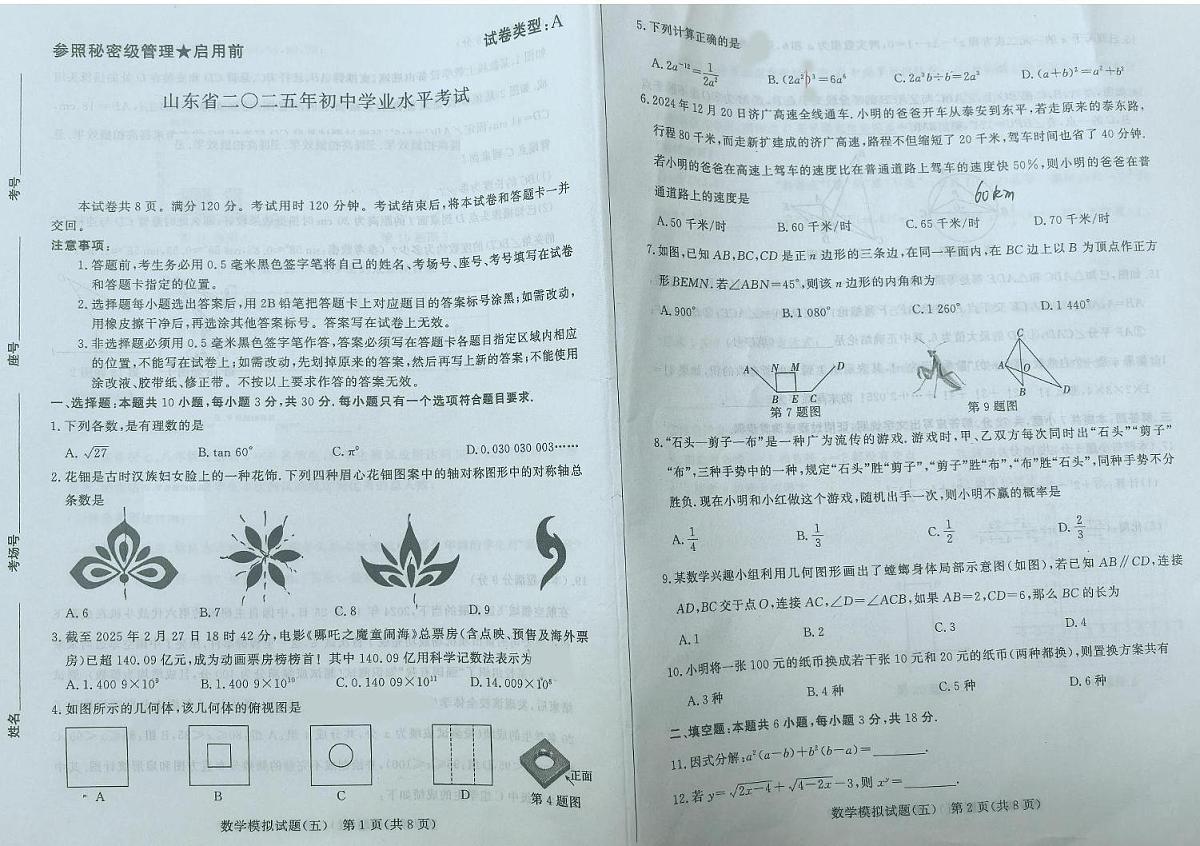 参照秘密级管理★启用前
试卷类型:A
山东省二〇二五年初中学业水平考试
本试卷共8页。满分120分。考试用时120分钟。考试结束后,将本试卷和答题卡一并
交回。
注意事项:
1.答题前,考生务必用0.5毫米黑色签字笔将自己的姓名、考场号、座号、考号填写在试卷
和答题卡指定的位置。
2.选择题每小题选出答案后,用2B铅笔把答题卡上对应题目的答案标号涂黑;如需改动,
用橡皮擦干净后,再选涂其他答案标号。答案写在试卷上无效。
3.非选择题必须用0.5毫米黑色签字笔作答,答案必须写在答题卡各题目指定区域内相应
的位置,不能写在试卷上;如需改动,先划掉原来的答案,然后再写上新的答案;不能使用
涂改液、胶带纸、修正带。不按以上要求作答的答案无效。
一、选择题:本题共10小题,每小题3分,共30分.每小题只有一个选项符合题目要求.
1.下列各数,是有理数的是
A.√27 B.tan 60° C.π⁰ D.0.030 030 003……
2.花钿是古时汉族妇女脸上的一种花饰.下列四种眉心花钿图案中的轴对称图形中的对称轴总
条数是
A.6 B.7 C.8 D.9
3.截至2025年2月27日18时42分,电影《哪吒之魔童闹海》总票房(含点映、预售及海外票
房)已超140.09亿元,成为动画票房榜榜首!其中140.09亿用科学记数法表示为
A.1.400 9×10⁹ B.1.400 9×10¹⁰ C.0.140 09×10¹¹ D.14.009×10⁸
4.如图所示的几何体,该几何体的俯视图是
正面
A B C D 第4题图
数学模拟试题(五) 第1页(共8页)
考号
座号
考场号
姓名
5.下列计算正确的是
A.2a⁻¹²=1/2a² B.(2a²)³=6a⁶ C.2a³b÷b=2a³ D.(a+b)²=a²+b²
6.2024年12月20日济广高速全线通车.小明的爸爸开车从泰安到东平,若走原来的泰东路,
行程80千米,而走新扩建成的济广高速,路程不但缩短了20千米,驾车时间也省了40分钟.
若小明的爸爸在高速上驾车的速度比在普通道路上驾车的速度快50%,则小明的爸爸在普
通道路上的速度是
60km
A.50千米/时 B.60千米/时 C.65千米/时 D.70千米/时
7.如图,已知AB,BC,CD是正n边形的三条边,在同一平面内,在BC边上以B为顶点作正方
形BEMN.若∠ABN=45°,则该n边形的内角和为
A.900° B.1 080° C.1 260° D.1 440°
A N M D
B E C
第7题图
C
A O
B D
第9题图
8.“石头—剪子—布”是一种广为流传的游戏.游戏时,甲、乙双方每次同时出“石头”“剪子”
“布”,三种手势中的一种,规定“石头”胜“剪子”,“剪子”胜“布”,“布”胜“石头”,同种手势不分
胜负.现在小明和小红做这个游戏,随机出手一次,则小明不赢的概率是
A.1/4 B.1/3 C.1/2 D.2/3
9.某数学兴趣小组利用几何图形画出了螳螂身体局部示意图(如图),若已知AB∥CD,连接
AD,BC交于点O,连接AC,∠D=∠ACB,如果AB=2,CD=6,那么BC的长为
A.1 B.2 C.3 D.4
10.小明将一张100元的纸币换成若干张10元和20元的纸币(两种都换),则置换方案共有
A.3种 B.4种 C.5种 D.6种
二、填空题:本题共6小题,每小题3分,共18分.
11.因式分解:a²(a−b)+b²(b−a)=________.
12.若y=√2x−4+√4−2x−3,则xʸ=________.
数学模拟试题(五) 第2页(共8页)